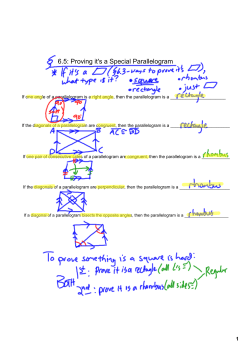 § 6.5: Proving it's a Special Parallelogram
* If it's a ▱ (§6.3 - ways to prove it's ▱),
what type is it?
• square
• rhombus
• rectangle
• just ▱
If one angle of a parallelogram is a right angle, then the parallelogram is a rectangle
If the diagonals of a parallelogram are congruent, then the parallelogram is a rectangle
A
B
D
C
AC ≅ BD
If one pair of consecutive sides of a parallelogram are congruent then the parallelogram is a rhombus
If the diagonals of a parallelogram are perpendicular, then the parallelogram is a rhombus
If a diagonal of a parallelogram bisects the opposite angles, then the parallelogram is a rhombus
To prove something is a square is hard:
Both
1st: Prove it is a rectangle (all ∠s =)
2nd: prove it is a rhombus (all sides =)
Regular
1